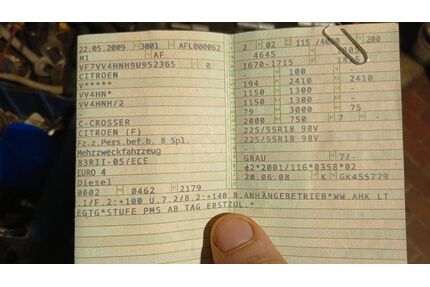 22.05.2009 3001 AFL000062
M1 AF
VF7VV4HNH9U952365 0
CITROEN
V*****
VV4HN*
VV4HNH/2
C-CROSSER
CITROEN (F)
Fz.z.Pers.bef.b. 8 Spl.
Mehrzweckfahrzeug
B3RII-05/ECE
EURO 4
Diesel
0002 0462 2179
2 02 115 /4000 200
4645
1670-1715
100
194 2410 2410
1150 1300
1150 1300
79 3000 75
2000 750 7
225/55R18 98V
225/55R18 98V
GRAU 7/-
e2*2001/116*0358*02
20.06.08 K GK455779
1/F.2:+100 U.7.2/8.2:+140 B.ANHÄNGEBETRIEB*WW.AHK LT
EGTG*STUFE PM5 AB TAG ERSTZUL.*